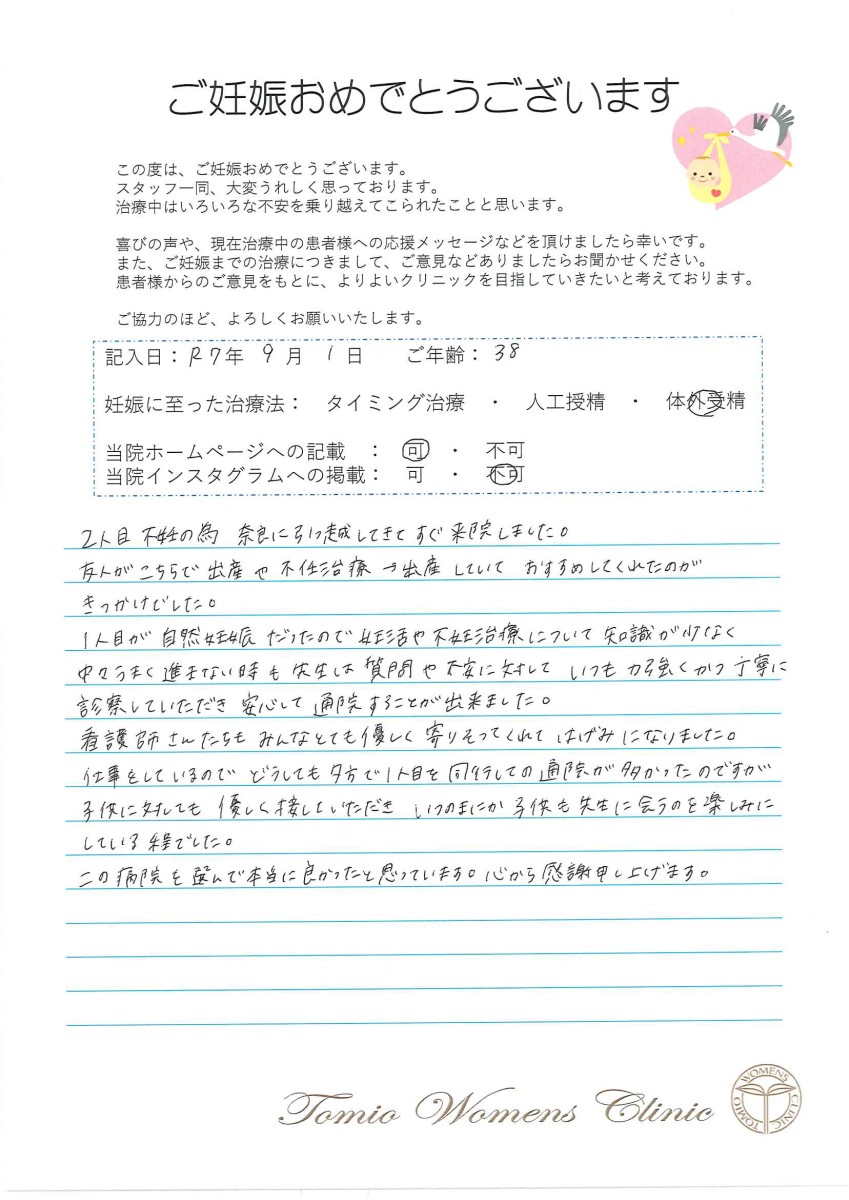 ご妊娠おめでとうございます
この度は、ご妊娠おめでとうございます。
スタッフ一同、大変うれしく思っております。
治療中はいろいろな不安を乗り越えてこられたことと思います。
喜びの声や、現在治療中の患者様への応援メッセージなどを頂けましたら幸いです。
また、ご妊娠までの治療につきまして、ご意見などありましたらお聞かせください。
患者様からのご意見をもとに、よりよいクリニックを目指していきたいと考えております。
ご協力のほど、よろしくお願いいたします。
記入日：R7年 9月 1日 ご年齢：38
妊娠に至った治療法： タイミング治療 ・ 人工授精 ・ 体外受精
当院ホームページへの記載 ： 可 ・ 不可
当院インスタグラムへの掲載： 可 ・ 不可
2人目 不妊の為 奈良に引っ越してきて すぐ 来院しました。
友人がこちらで 出産や 不任治療→出産 していて おすすめしてくれたのが
きっかけでした。
1人目が 自然妊娠 だったので 妊活や 不妊治療について 知識が少なく
中々うまく進まない時も 先生は 質問や不安に対して いつも 力強くかつ 丁寧に
診察していただき 安心して 通院することが出来ました。
看護師さんたちも みんなとても優しく 寄りそってくれて はげみになりました。
仕事をしているので どうしても 夕方で1人目を 同行しての 通院が 多かったのですが
子供に対しても 優しく接していただき いつのまにか 子供も先生に会うのを楽しみに
している 程でした。
この病院を 選んで本当に良かったと思っています。心から感謝申し上げます。
Tomio Womens Clinic
TOMIO WOMENS CLINIC